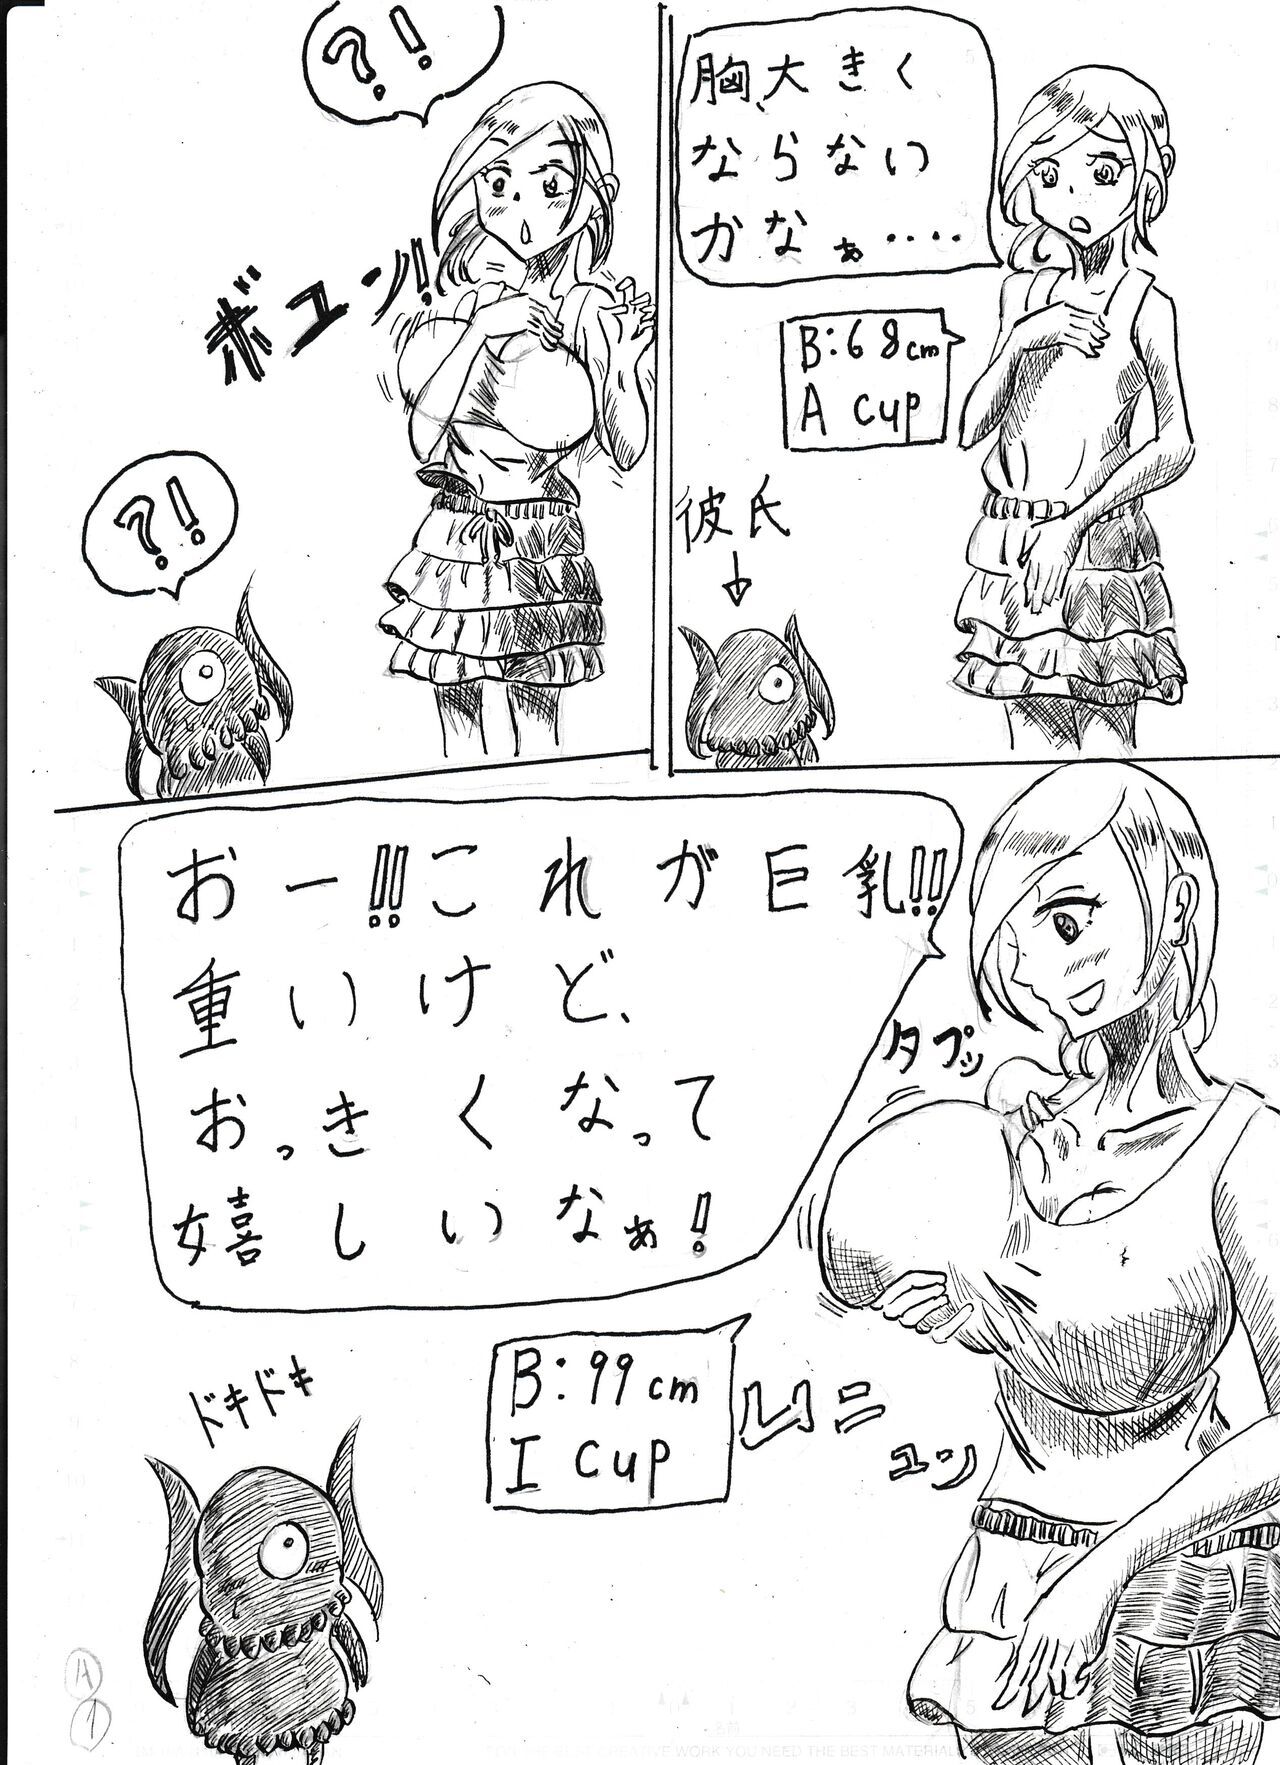 胸、大きく
ならない
かなぁ・・・・
B:68cm
A cup
彼氏
?!
ボユン!!
?!
おー!!これが巨乳!!
重いけど、
おっきくなって
嬉しいなぁ!
タプッ
B:99cm
I cup
ムニ
ユン
ドキドキ